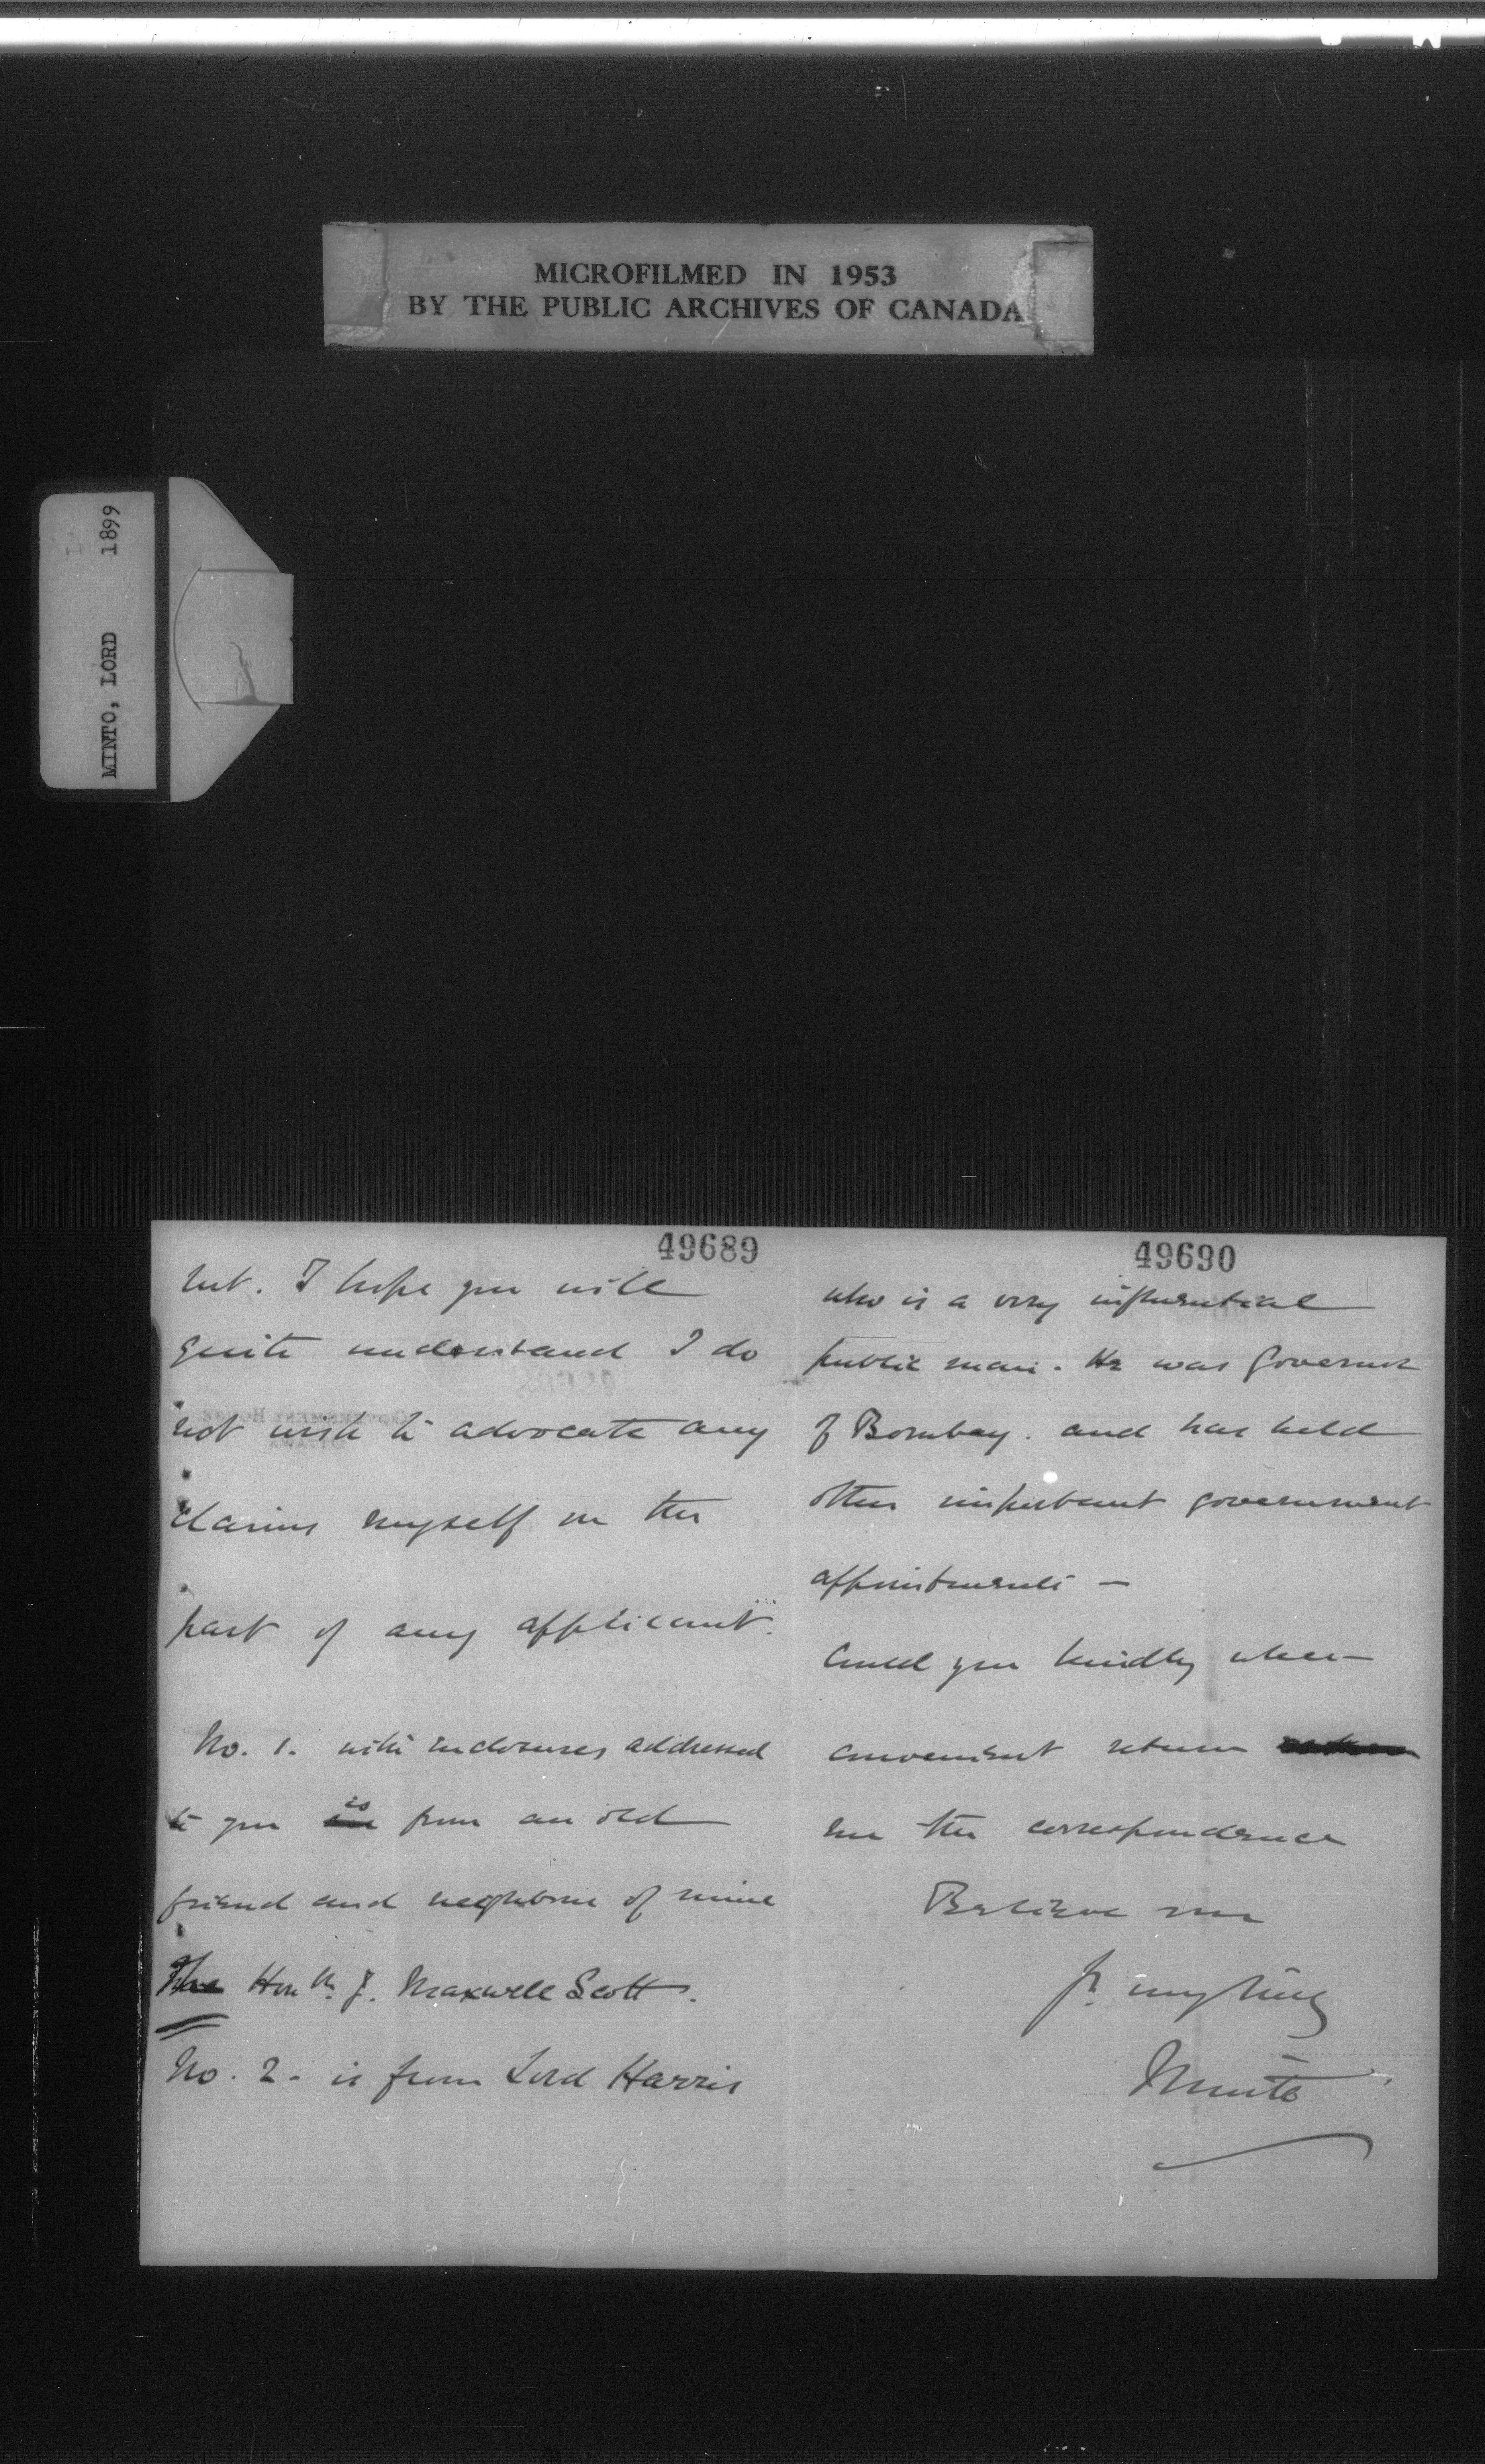 MICROFILMED IN 1953
BY THE PUBLIC ARCHIVES OF CANADA
MINTO, LORD 1899
49689
but. I hope you will
quite understand I do
not wish to advocate any
claims myself on the
part of any applicant.
No. 1. with enclosures addressed
to you is from an old
friend and neighbour of mine
The Honble J. Maxwell Scott.
No. 2. is from Lord Harris
49690
who is a very influential
public man. He was Governor
of Bombay. and has held
other important government
appointments —
Could you kindly when
convenient return
me the correspondence
Believe me
Yrs. very truly
Minto